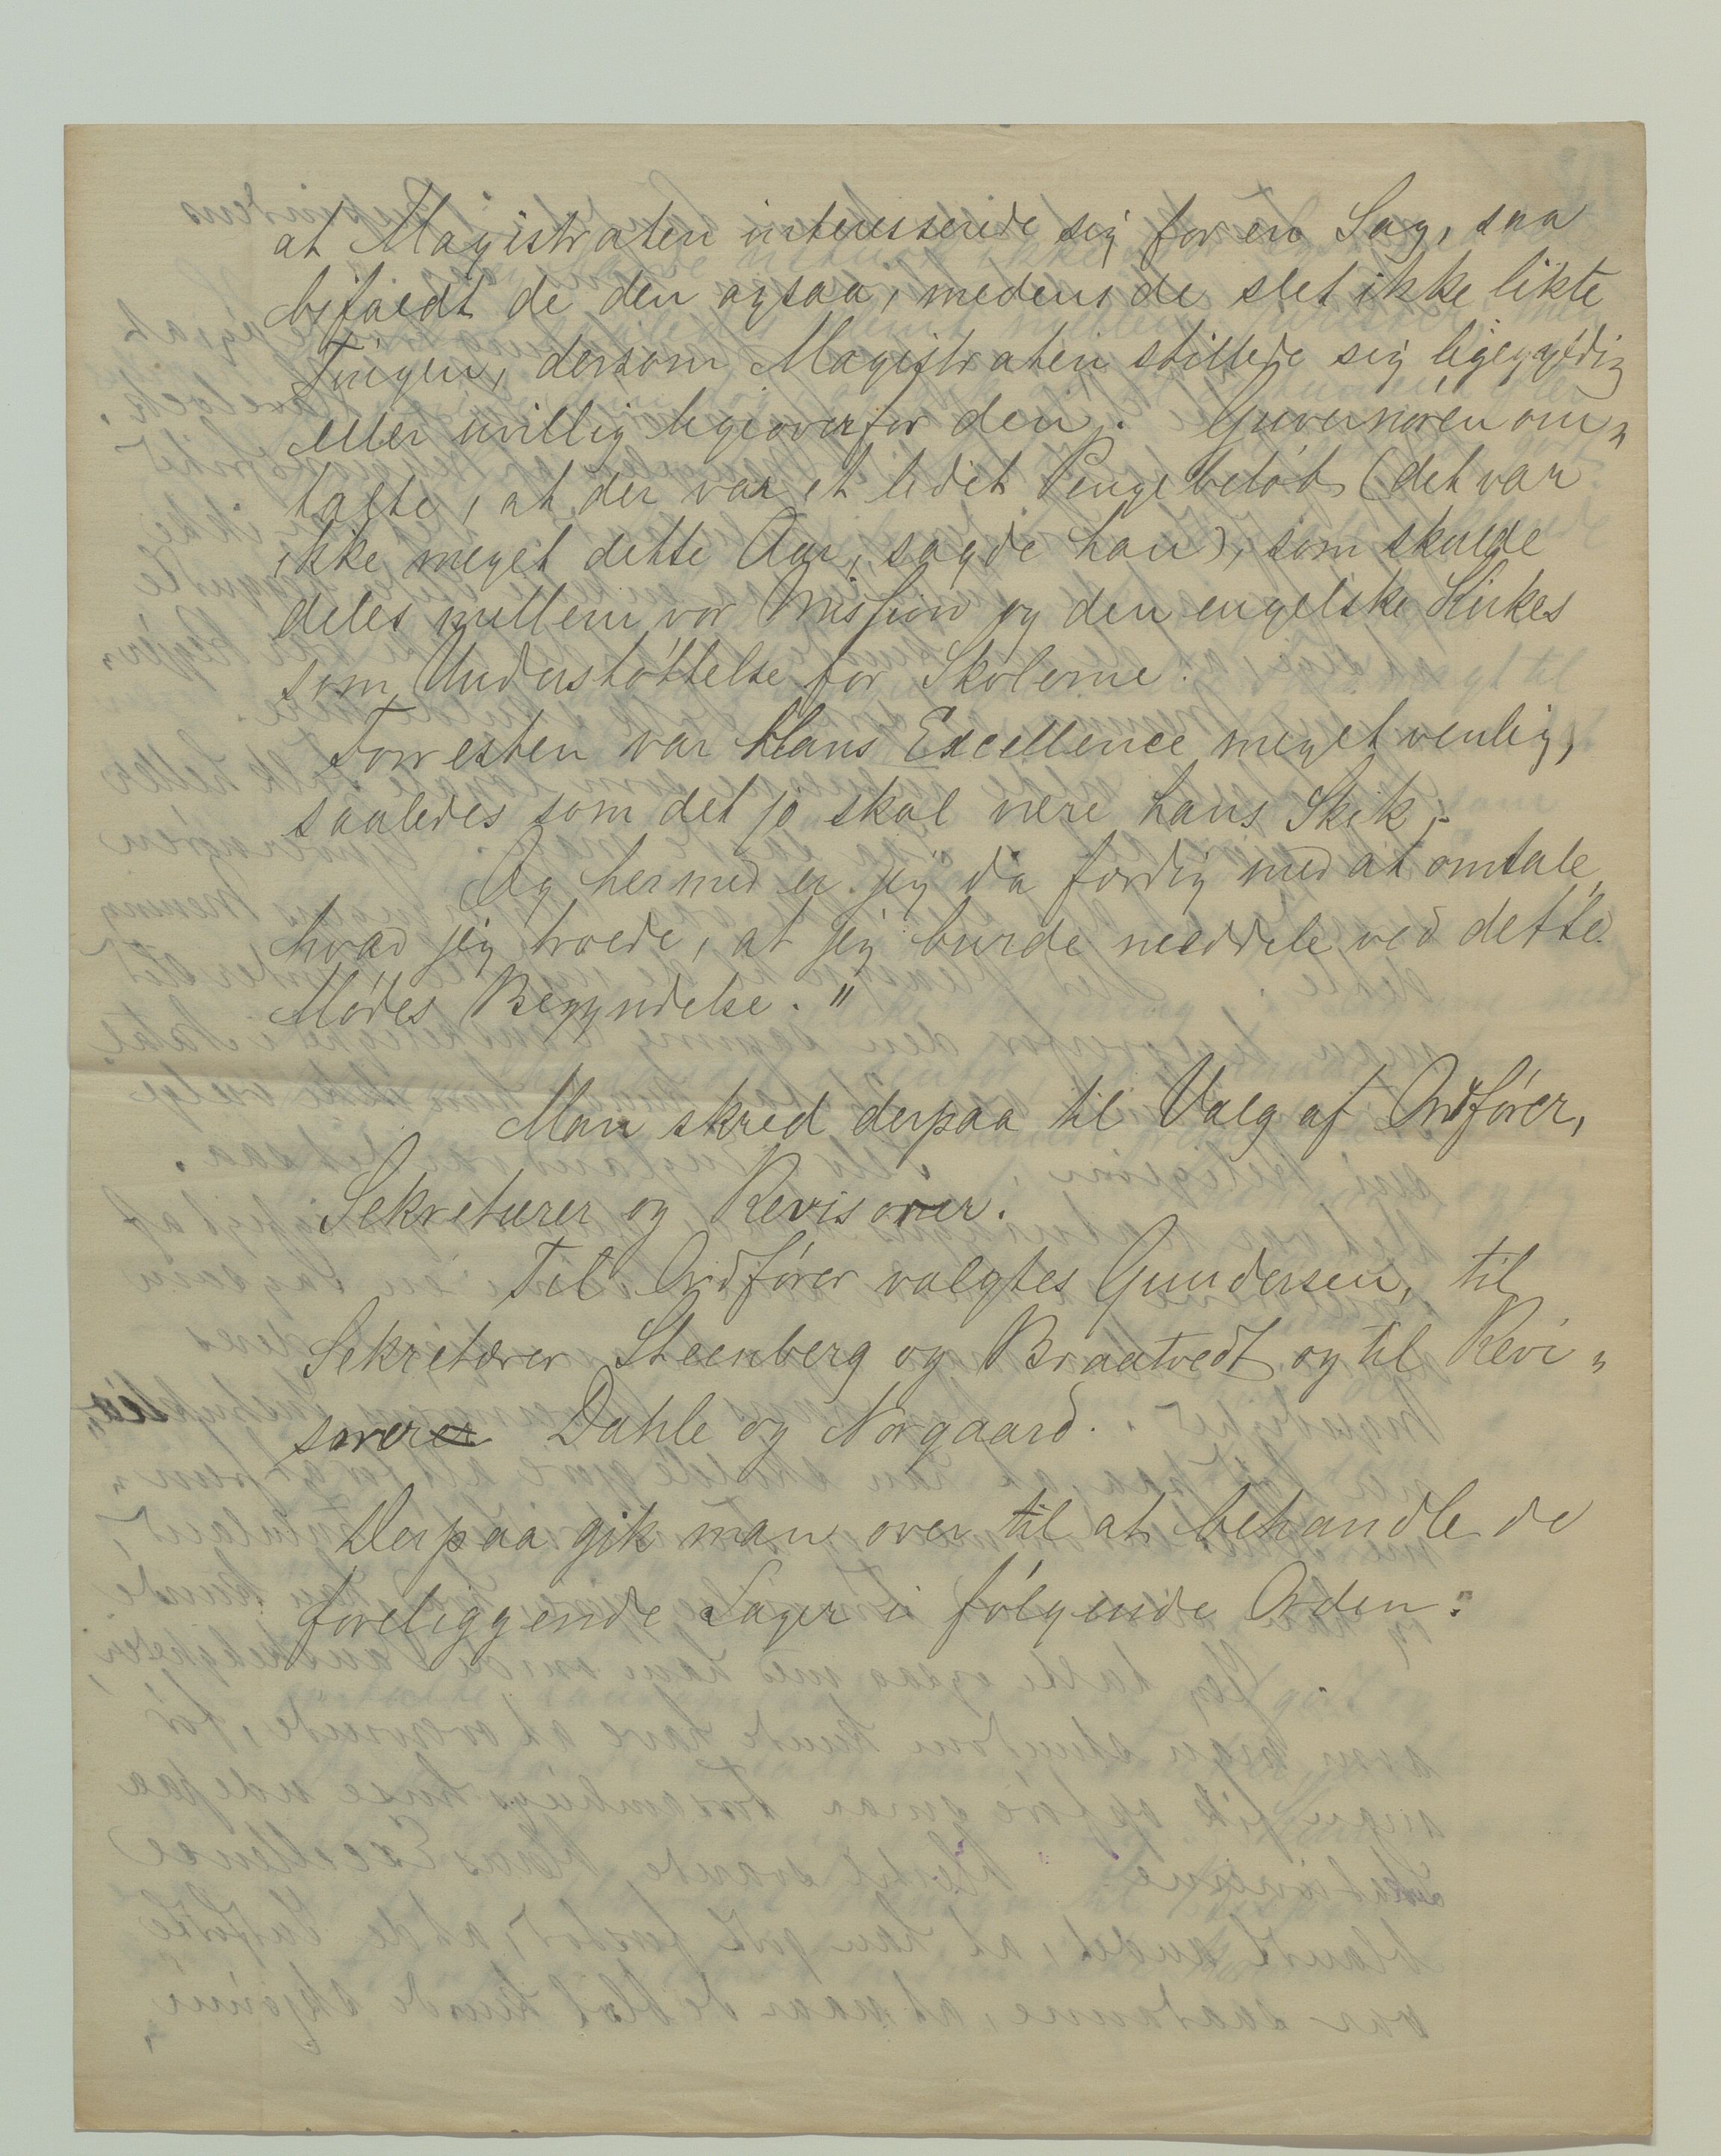 at Magistraten interesserede sig for en Sag, saa
bifaldt de den ogsaa, medens de slet ikke likte
Tingen, dersom Magistraten stillede sig ligegyldig
eller uvillig ligeoverfor den. Guvernøren om„
talte, at der var et lidet Pengebeløb (det var
ikke meget dette Aar, sagde han), som skulde
deles mellem vor Mission og den engelske Kirkes
som Understøttelse for Skolerne.
Forresten var Hans Excellence meget venlig,
saaledes som det jo skal være hans Skik.
Og hermed er jeg da færdig med at omtale,
hvad jeg troede, at jeg burde meddele ved dette
Mødes Begyndelse."
Man skred derpaa til Valg af Ordfører,
Sekretærer og Revisorer.
Til Ordfører valgtes Gundersen, til
Sekretærer Steenberg og Braatvedt og til Revi„
sorer Dahle og Norgaard.
Derpaa gik man over til at behandle de
foreliggende Sager i følgende Orden: